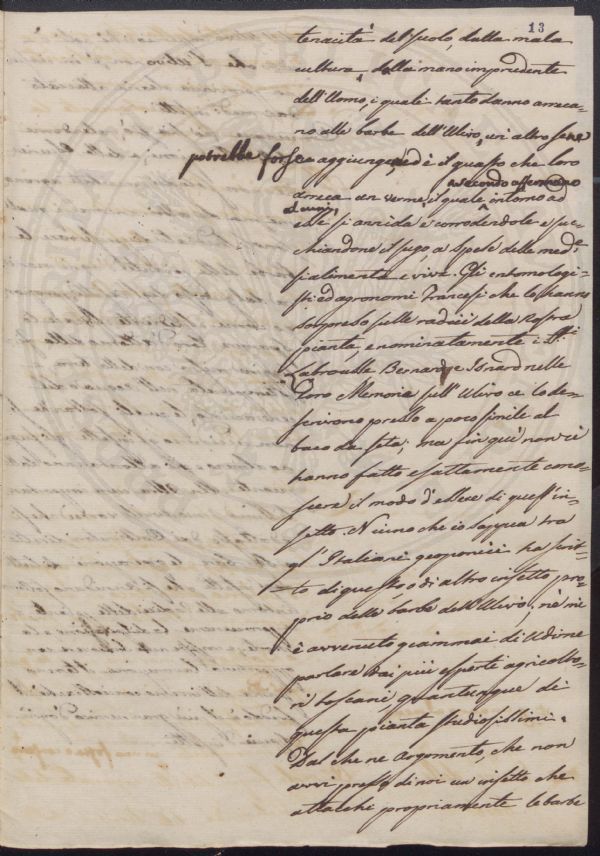 13
tenacità del suolo, dalla mala
cultura, dalla mano imprudente
dell'Uomo, i quali tanto danno arreca-
no alle barbe dell'Ulivo, un'altro se ne
potrebbe forse aggiungere, ed è il guasto che loro
secondo affermano
arreca un verme, il quale intorno ad
alcuni,
esse si annida e corrodendole e suc-
chiandone il sugo, a spese delle mede-
si alimenta e vive. Gli entomologi-
sti ed agronomi Francesi che lo hanno
sorpreso sulle radici della nostra
pianta, e nominatamente i SS.ri
Labroulle Bernard, e Isnard nelle
loro Memorie sull'Ulivo ce lo de-
scrivono presso a poco simile al
baco da seta; ma fin qui non ci
hanno fatto esattamente cono-
scere il modo d'essere di quest'in-
setto. Niuno che io sappia tra
gl'Italiani geoponici ha scrit-
to di questo, o di altro insetto pro-
prio delle barbe dell'Ulivo, nè mi
è avvenuto giammai di udirne
parlare trai più esperti agricolto-
ri toscani, quantunque di
questa pianta studiosissimi.
Dal che ne argomento, che non
avvi presso di noi un insetto che
attacchi propriamente le barbe